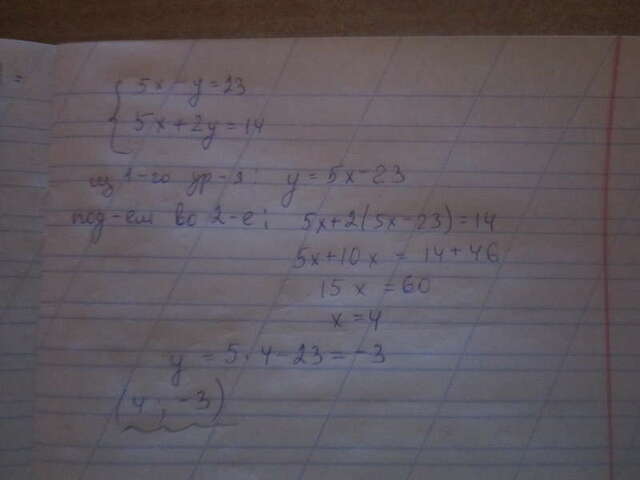 { 5x - y = 23
5x + 2y = 14
из 1-го ур-я: y = 5x - 23
под-ем во 2-е: 5x + 2(5x - 23) = 14
5x + 10x = 14 + 46
15x = 60
x = 4
y = 5 · 4 - 23 = -3
(4; -3)